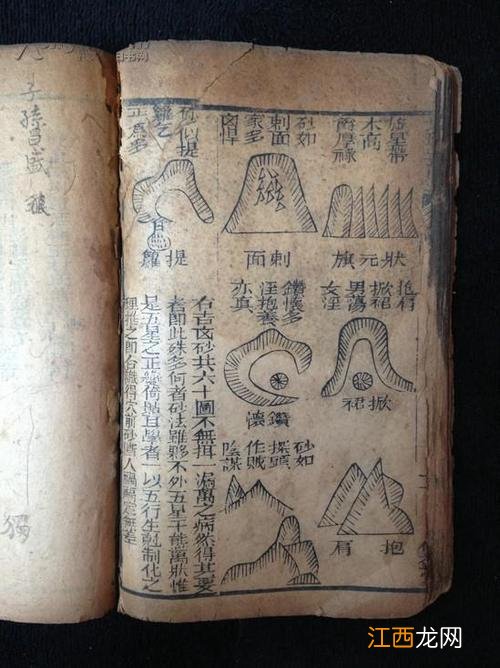 木高
爵厚祿
狀元旗
砂如
刺面
家多
凶悍
刺面
砂似提
籮之
提籮
抱肩
掀裙
男蕩
女淫
掀裙
鑽懷多
淫抱養
亦真
鑽懷
抱肩
砂如
探頭
作賊
陰謀
右吉凶砂共六十圖不無挂一漏萬之病然得其要
者卽此殊多何者砂法雖夥不外五星千態萬狀惟
是五星之正變倚耳學者一以五行生尅制化之
理推之卽得穴前砂人禍福定無差
子孫昌盛
獨
江西龙网